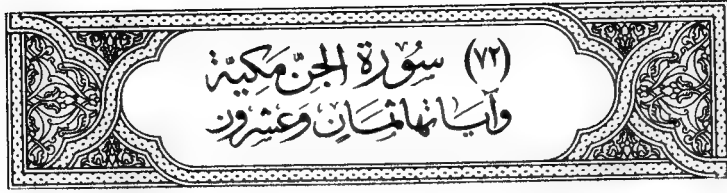 (٧٢) سُورَة الجِنّ مَكِيَّة
وَآيَاتهَا ثَمَانٍ وَعِشْرُون